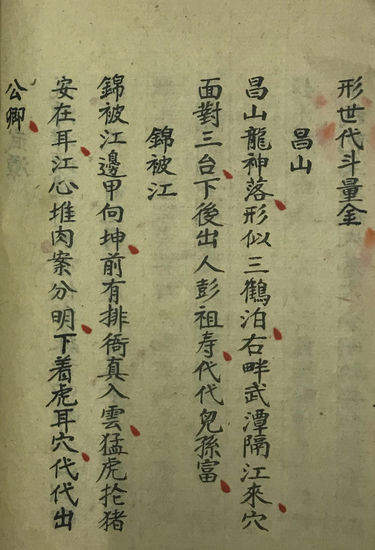 形世代斗量金
昌山
昌山龍神落形似三鶴泊右畔武潭隔江來穴
面對三台下後出人彭祖寿代代兒孫富
錦被江
錦被江邊甲向坤前有排衙真入雲猛虎抡猪
安在耳江心堆肉案分明下着虎耳穴代代出
公卿